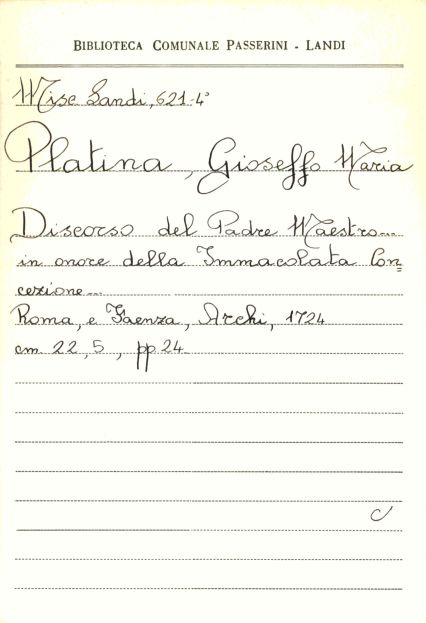 BIBLIOTECA COMUNALE PASSERINI - LANDI
Misc Landi, 621-4°
Platina, Gioseffo Maria
Discorso del Padre Maestro...
in onore della Immacolata Con=
cezione...
Roma, e Faenza, Archi, 1724
cm. 22,5, pp. 24
c